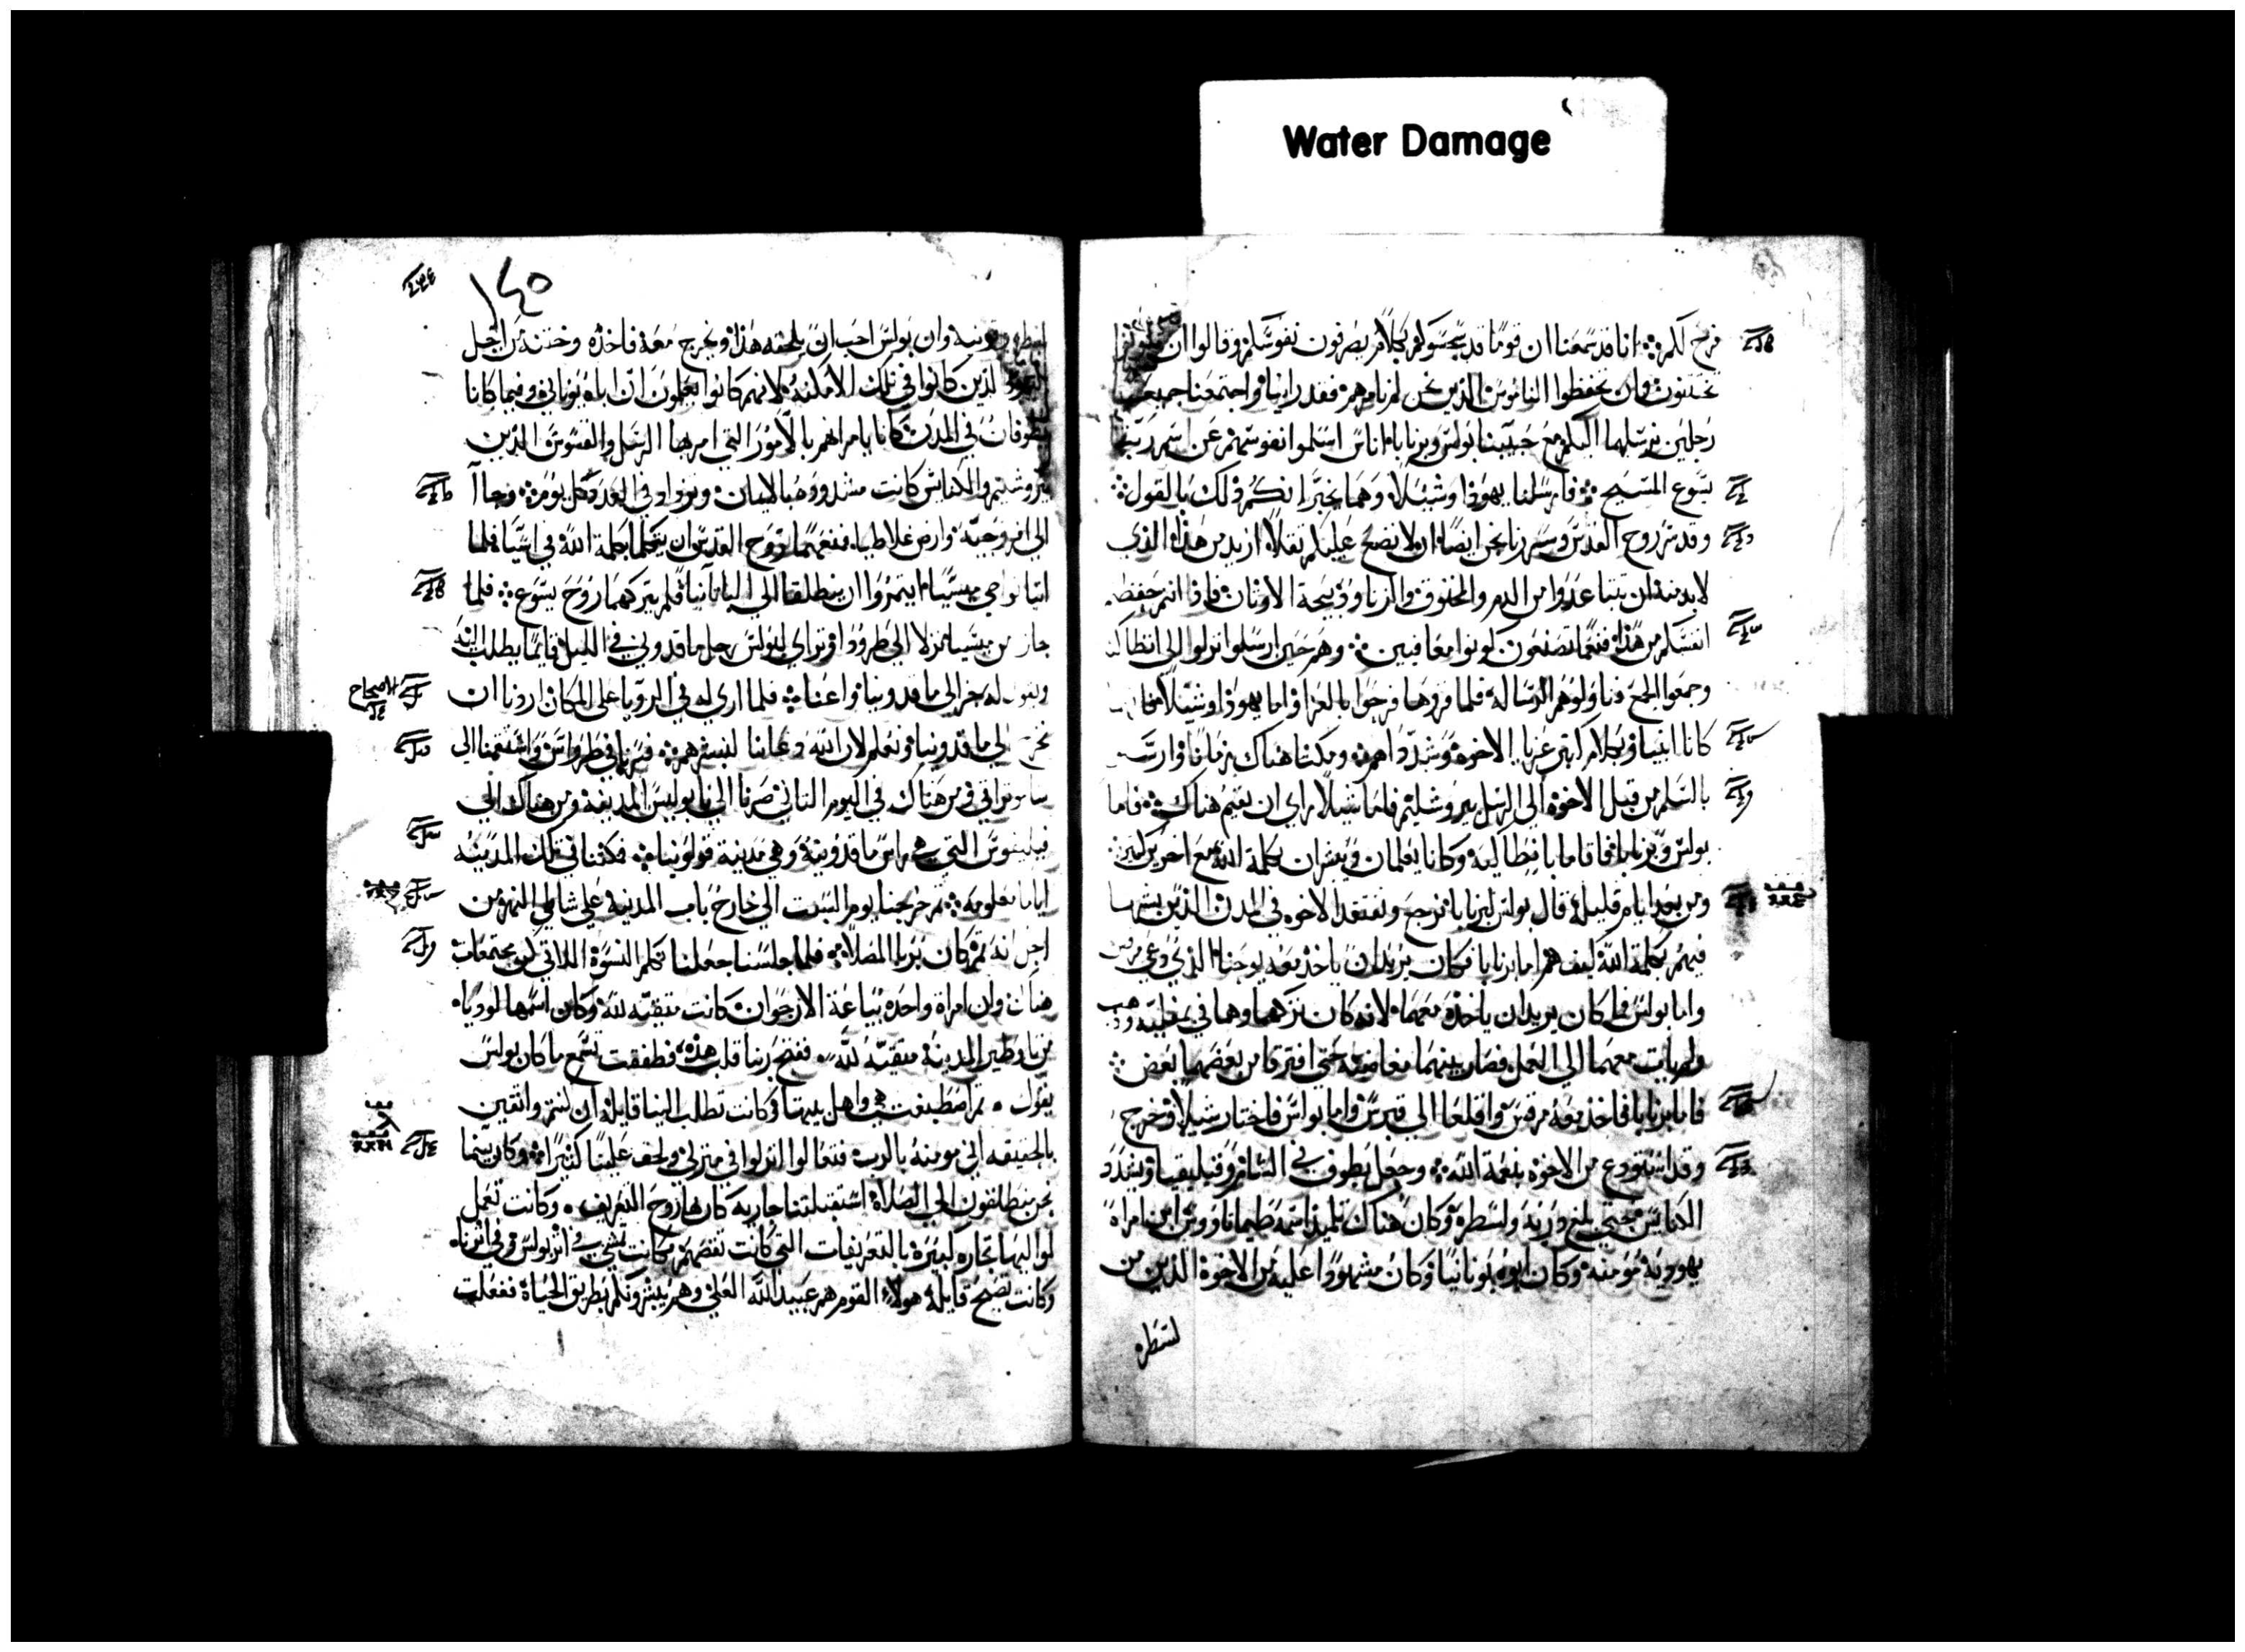 Water Damage
فرح لكم انا قد سمعنا ان قوما قد سجسوكم بكلام يصرفون نفوسكم وقالوا ان
تختتنون وان تحفظوا الناموس الذين نحن لم نامرهم فقد راينا واجتمعنا جميعنا
رجلين نرسلهما اليكم مع حبيبنا بولس وبرنابا اناس اسلموا نفوسهم عن اسم ربنا
يسوع المسيح فارسلنا يهوذا وشيلا وهما يخبرانكم ذلك بالقول
وقد سر روح القدس وسررنا نحن ايضا ان لا نضع عليكم ثقلا ازيد من هذا الذي
لا بد منه ان تتباعدوا من الدم والمخنوق والزنا وذبيحة الاوثان فاذا انتم حفظتم
انفسكم من هذا فنعما تصنعون كونوا معافيين وهم حين ارسلوا نزلوا الى انطاكيه
وجمعوا الجمع وناولوهم الرساله فلما قروها فرحوا بالعزا واما يهوذا وشيلا
كانا انبيا وبكلام كثير عزيا الاخوة وشدداهم ومكثا هناك زمانا وارسلا
بالسلم من قبل الاخوة الى الرسل بيروشليم فاما شيلا راى ان يقيم هناك فاما
بولس وبرنابا فاقاما بانطاكيه وكانا يعلمان ويبشران بكلمة الله مع اخر كثير
ومن بعد ايام قليله قال بولس لبرنابا نرجع ونفتقد الاخوه في المدن الذين بشرنا
فيهم بكلمة الله كيف هم اما برنابا فكان يريد ان ياخذ معه يوحنا الذي دعي مرقس
واما بولس فما كان يريد ان ياخذه معهما لانه كان تركهما وهما في وذهب
ولم يات معهما الى العمل فصار بينهما مغاضبه حتى افترقا من بعضهما بعض
فاما برنابا فاخذ معه مرقس واقلعا الى قبرس واما بولس فاختار شيلا وخرج
وقد استودع من الاخوه بنعمة الله وجعل يطوف في الشام وفيليقيا ويشدد
الكنايس حتى بلغ دربه ولسطره وكان هناك تلميذ اسمه طيماثاووس ابن امراة
يهودية مومنه وكان ابوه يونانيا وكان مشهودا عليه من الاخوة الذين من
لسطره
١٤٥
لسطره وان بولس احب ان يلحقه هذا ويخرج معه فاخذه وختنه من اجل
اليهود الذين كانوا في تلك الامكنه لانهم كانوا يعلمون ان اباه يوناني وفيما كانا
يطوفان في المدن كانا يامراهم بالامور التي امر بها الرسل والقسوس الذين
بيروشليم والكنايس كانت تشدد وهبا لايمان وتزداد في العدد كل يوم وجاا
الى افروجيه وارض غلاطيا فمنعهما روح القدس ان يتكلما بكلمة الله في اسيا فلما
اتيا نواحي ميسيا ان ينطلقا الى البيتانيا فلم يتركهما روح يسوع فلما
جاز من ميسيا نزلا الى طروادا وتراى لبولس رجل ماقدوني في الليل قايما يطلب اليه
ويقول له جز الى ماقدونيا واعنا فلما اري له في الرويا على المكان اردنا ان
نخرج الى ماقدونيا ونعلم لان الله دعانا لنبشرهم فسرنا في طرواس واستقمنا الى
ساموثراقي ومن هناك في اليوم الثاني صرنا الى نابوليس المدينة ومن هناك الى
فيلبفوس التي هي راس ماقدونية وهي مدينة قولونيا فكثنا في تلك المدينه
اياما معلومه ثم خرجنا يوم السبت الى خارج باب المدينه على شاطي النهر من
اجل انه ثم كان يرا المصلا فلما جلسنا جعلنا نكلم النسوة اللاتي كن مجتمعات
هناك وان امراة واحده بياعة الارجوان كانت متقيه لله وكان اسمها لوديا
من ثاوطير المدينة متقيه لله ففتح ربنا قلب هذه فطفقت تسمع ما كان بولس
يقول ثم اصطبغت هي واهل بيتها وكانت تطلب الينا قايله ان كنتم واثقين
بالحقيقه اني مومنة بالرب فتعالوا انزلوا في منزلي ولحت علينا كثيرا وكان بينما
نحن منطلقون الى الصلاة استقبلتنا جاريه كان بها روح التعريف وكانت تعمل
لمواليها تجاره كبيره بالتعريفات التي كانت تقصهم وكانت تمشي في اثر بولس وفي اثرنا
وكانت تصيح قايله هولاء القوم هم عبيد الله العلي وهم يبشرونكم بطريق الحياة ففعلت
الاصحاح